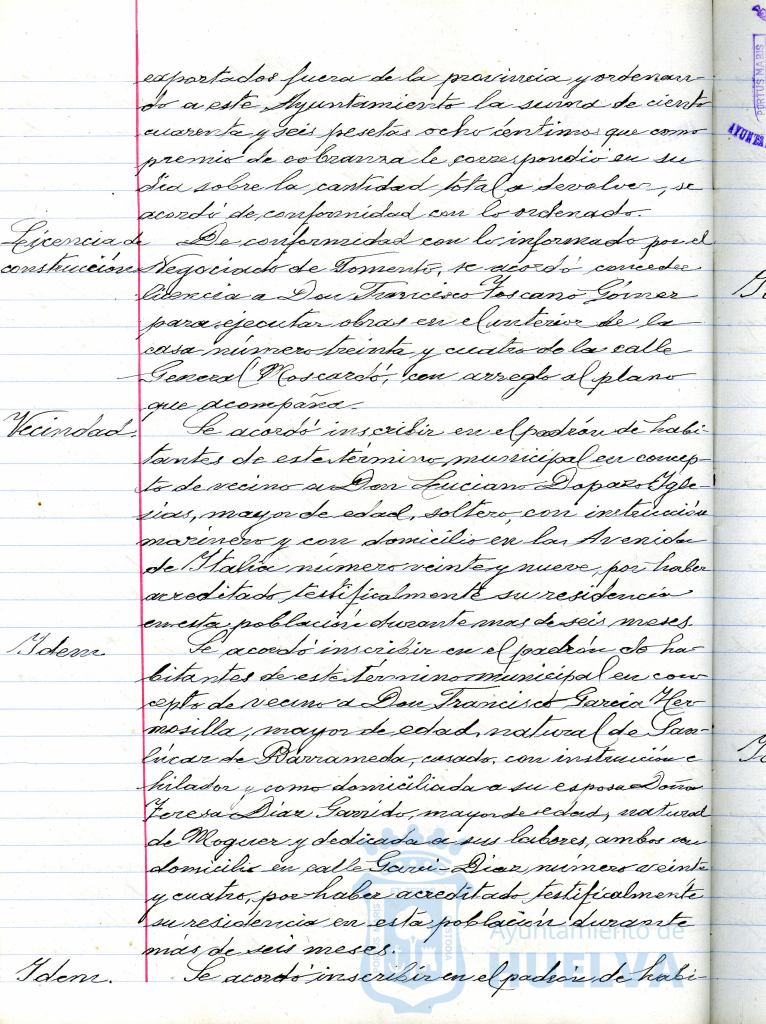 exportados fuera de la provincia y ordenan-
do a este Ayuntamiento la suma de ciento
cuarenta y seis pesetas ocho céntimos que como
premio de cobranza le correspondió en su
día sobre la cantidad total a devolver, se
acordó de conformidad con lo ordenado.
Licencia de construcción
De conformidad con lo informado por el
Negociado de Fomento, se acordó conceder
licencia a Don Francisco Toscano Gómez
para ejecutar obras en el interior de la
casa número treinta y cuatro de la calle
General Moscardó, con arreglo al plano
que acompaña.
Vecindad.
Se acordó inscribir en el padrón de habi-
tantes de este término municipal en concep-
to de vecino a Don Luciano Dopazo Igle-
sias, mayor de edad, soltero, con instrucción
marinero y con domicilio en la Avenida
de Italia número veinte y nueve, por haber
acreditado testificalmente su residencia
en esta población durante mas de seis meses.
Idem
Se acordó inscribir en el padrón de ha-
bitantes de este término municipal en con-
cepto de vecino a Don Francisco Garcia Her-
mosilla, mayor de edad, natural de San-
lúcar de Barrameda, casado, con instrucción e
hilador y como domiciliada a su esposa Doña
Teresa Díaz Garrido, mayor de edad, natural
de Moguer y dedicada a sus labores, ambos con
domicilio en calle Garci-Díaz, número veinte
y cuatro, por haber acreditado testificalmente
su residencia en esta población durante
mas de seis meses.
Idem.
Se acordó inscribir en el padrón de habi-
PORTUS MARIS
Ayuntamiento de
HUELVA